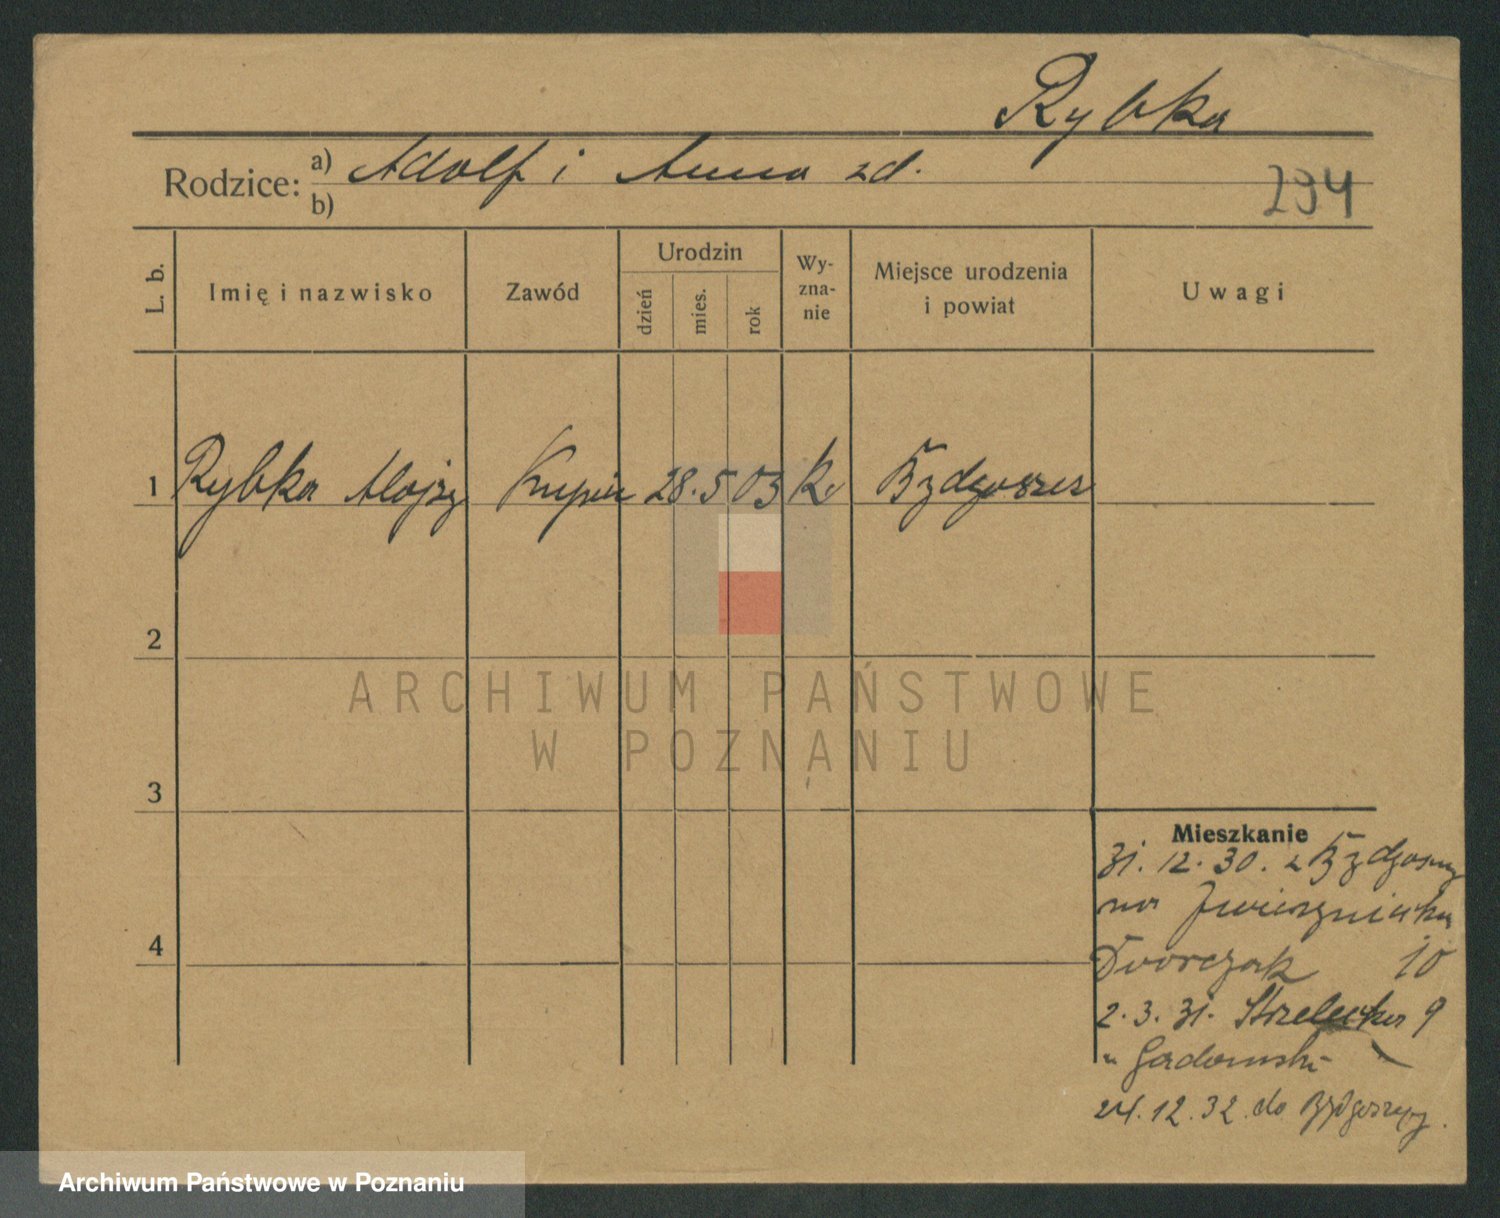 Rybka
Rodzice: a) Adolf i Anna zd.
b)
294
L. b. Imię i nazwisko Zawód Urodzin dzień mies. rok Wyznanie Miejsce urodzenia i powiat Uwagi
1 Rybka Alojzy Kupiec 28. 5 03 k. Bydgoszcz
2
3
4
ARCHIWUM PAŃSTWOWE
W POZNANIU
Mieszkanie
31. 12. 30. z Bydgoszczy
na Zwierzyniecka
Dworczak 10
2. 3. 31. Strzelecka 9
" Gadomski
24. 12. 32. do Bydgoszczy.
Archiwum Państwowe w Poznaniu